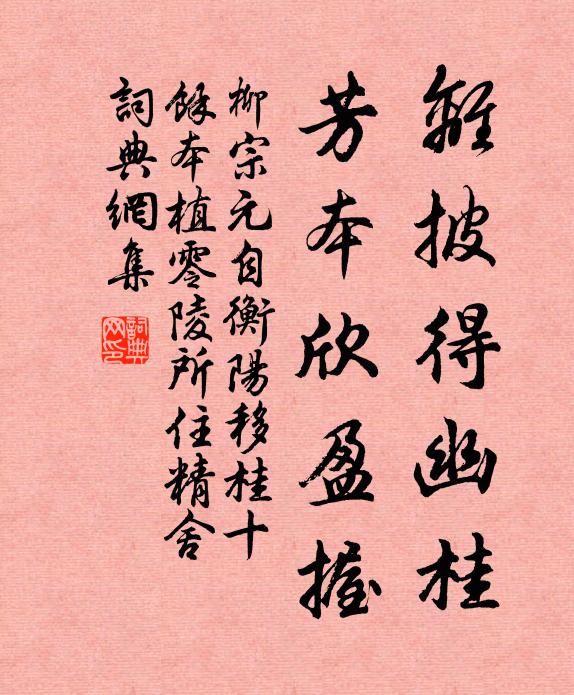 離披得幽桂
芳本欣盈握
柳宗元自衡陽移桂十
餘本植零陵所住精舍
詞典網集
詞典
网印